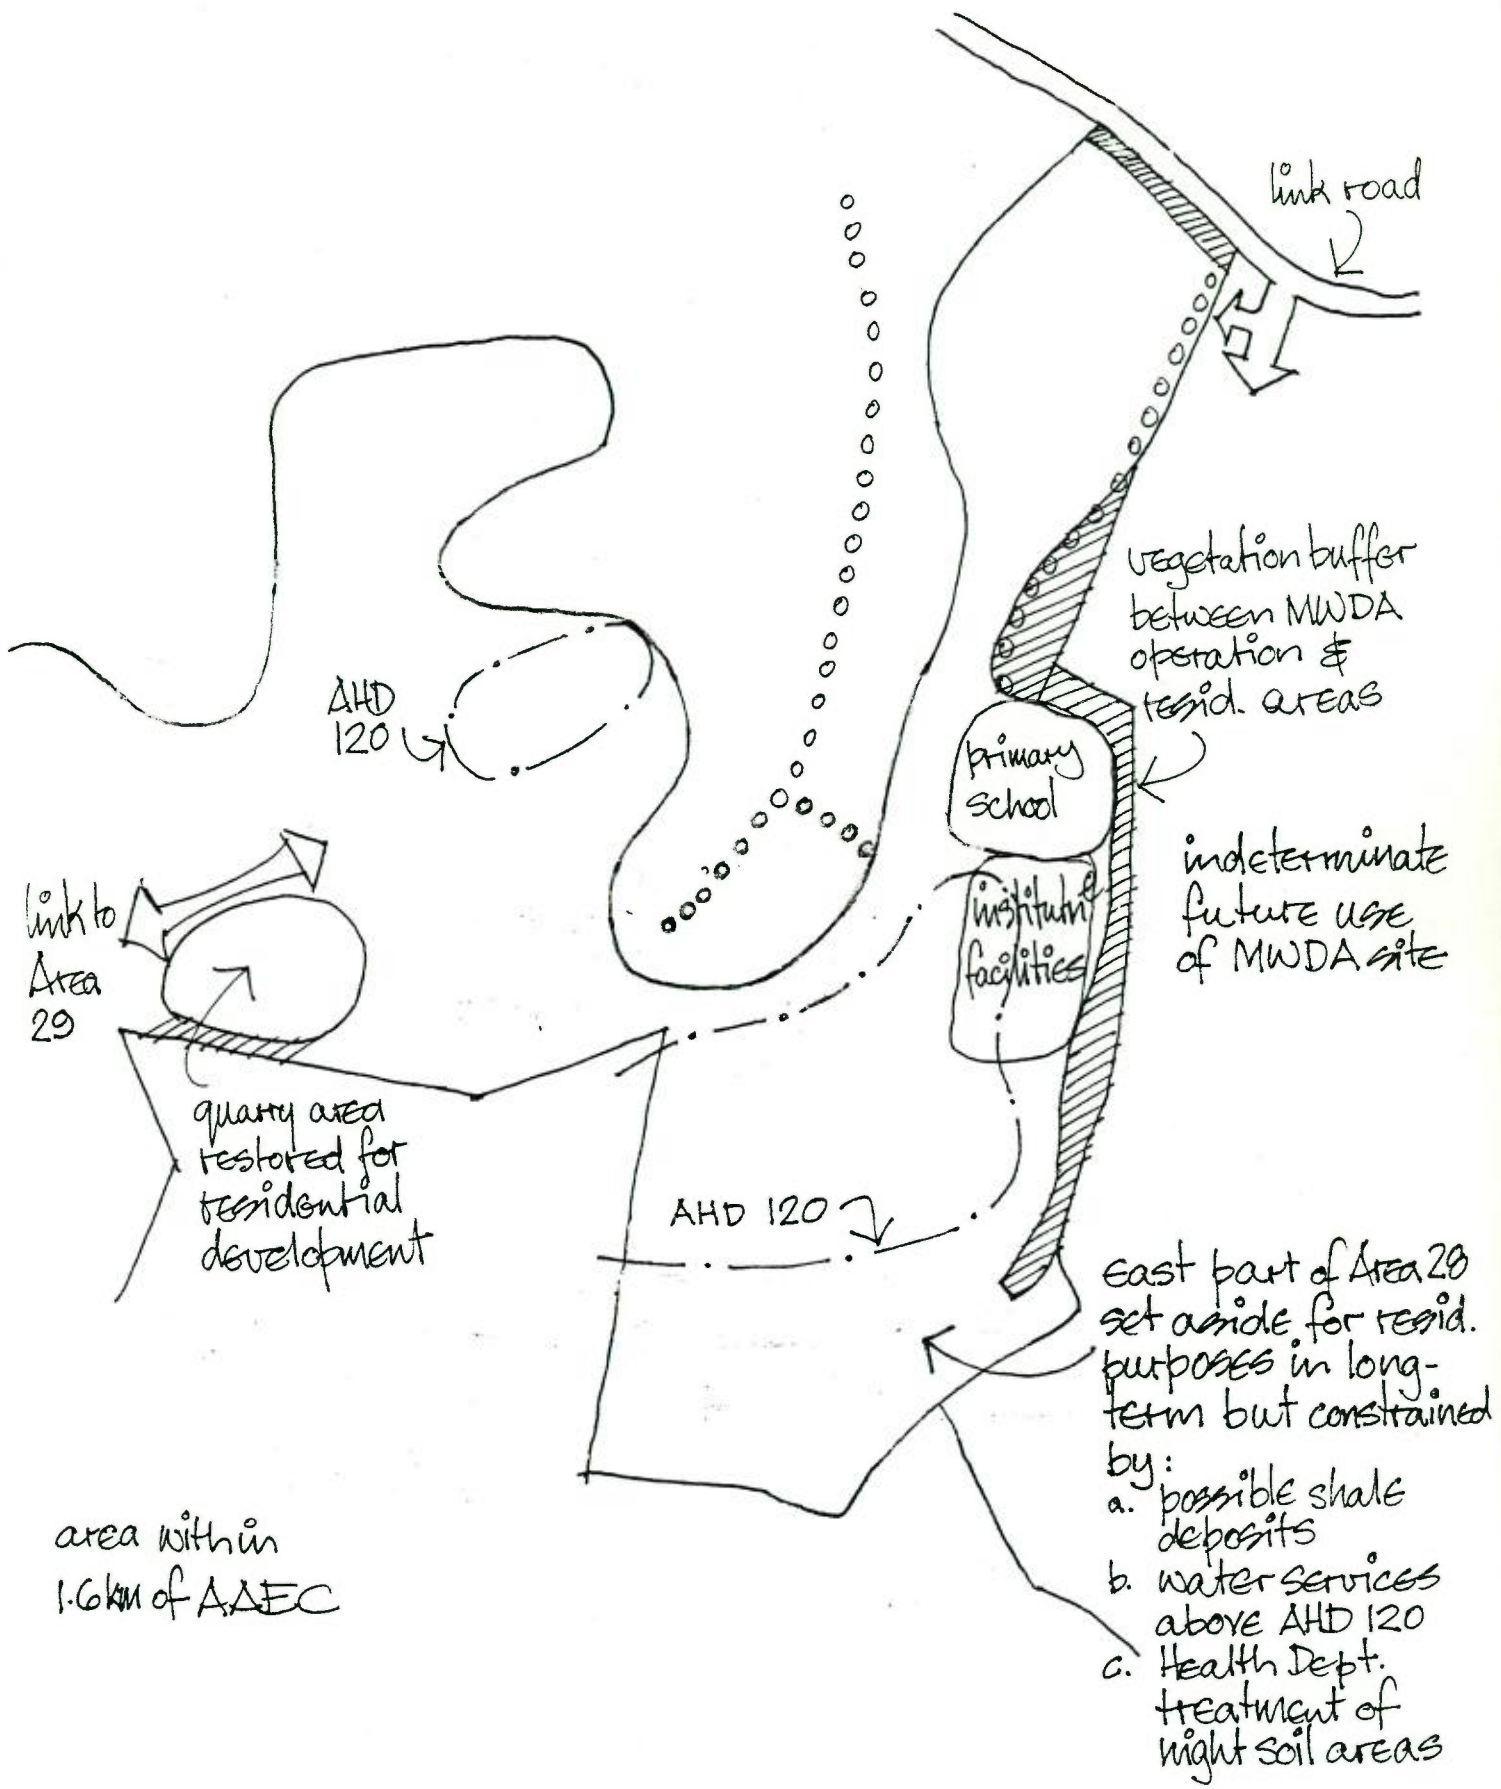 link road
vegetation buffer
between MWDA
operation &
resid. areas
AHD
120
primary
school
indeterminate
future use
of MWDA site
institutn
facilities
link to
Area
29
quarry area
restored for
residential
development
AHD 120
East part of Area 28
set aside for resid.
purposes in long-
term but constrained
by:
a. possible shale
deposits
b. water services
above AHD 120
c. Health Dept.
treatment of
night soil areas
area within
1.6 km of AAEC